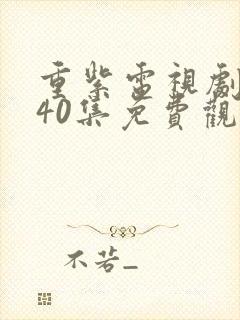 重紫電視劇
40集免費觀
不若_